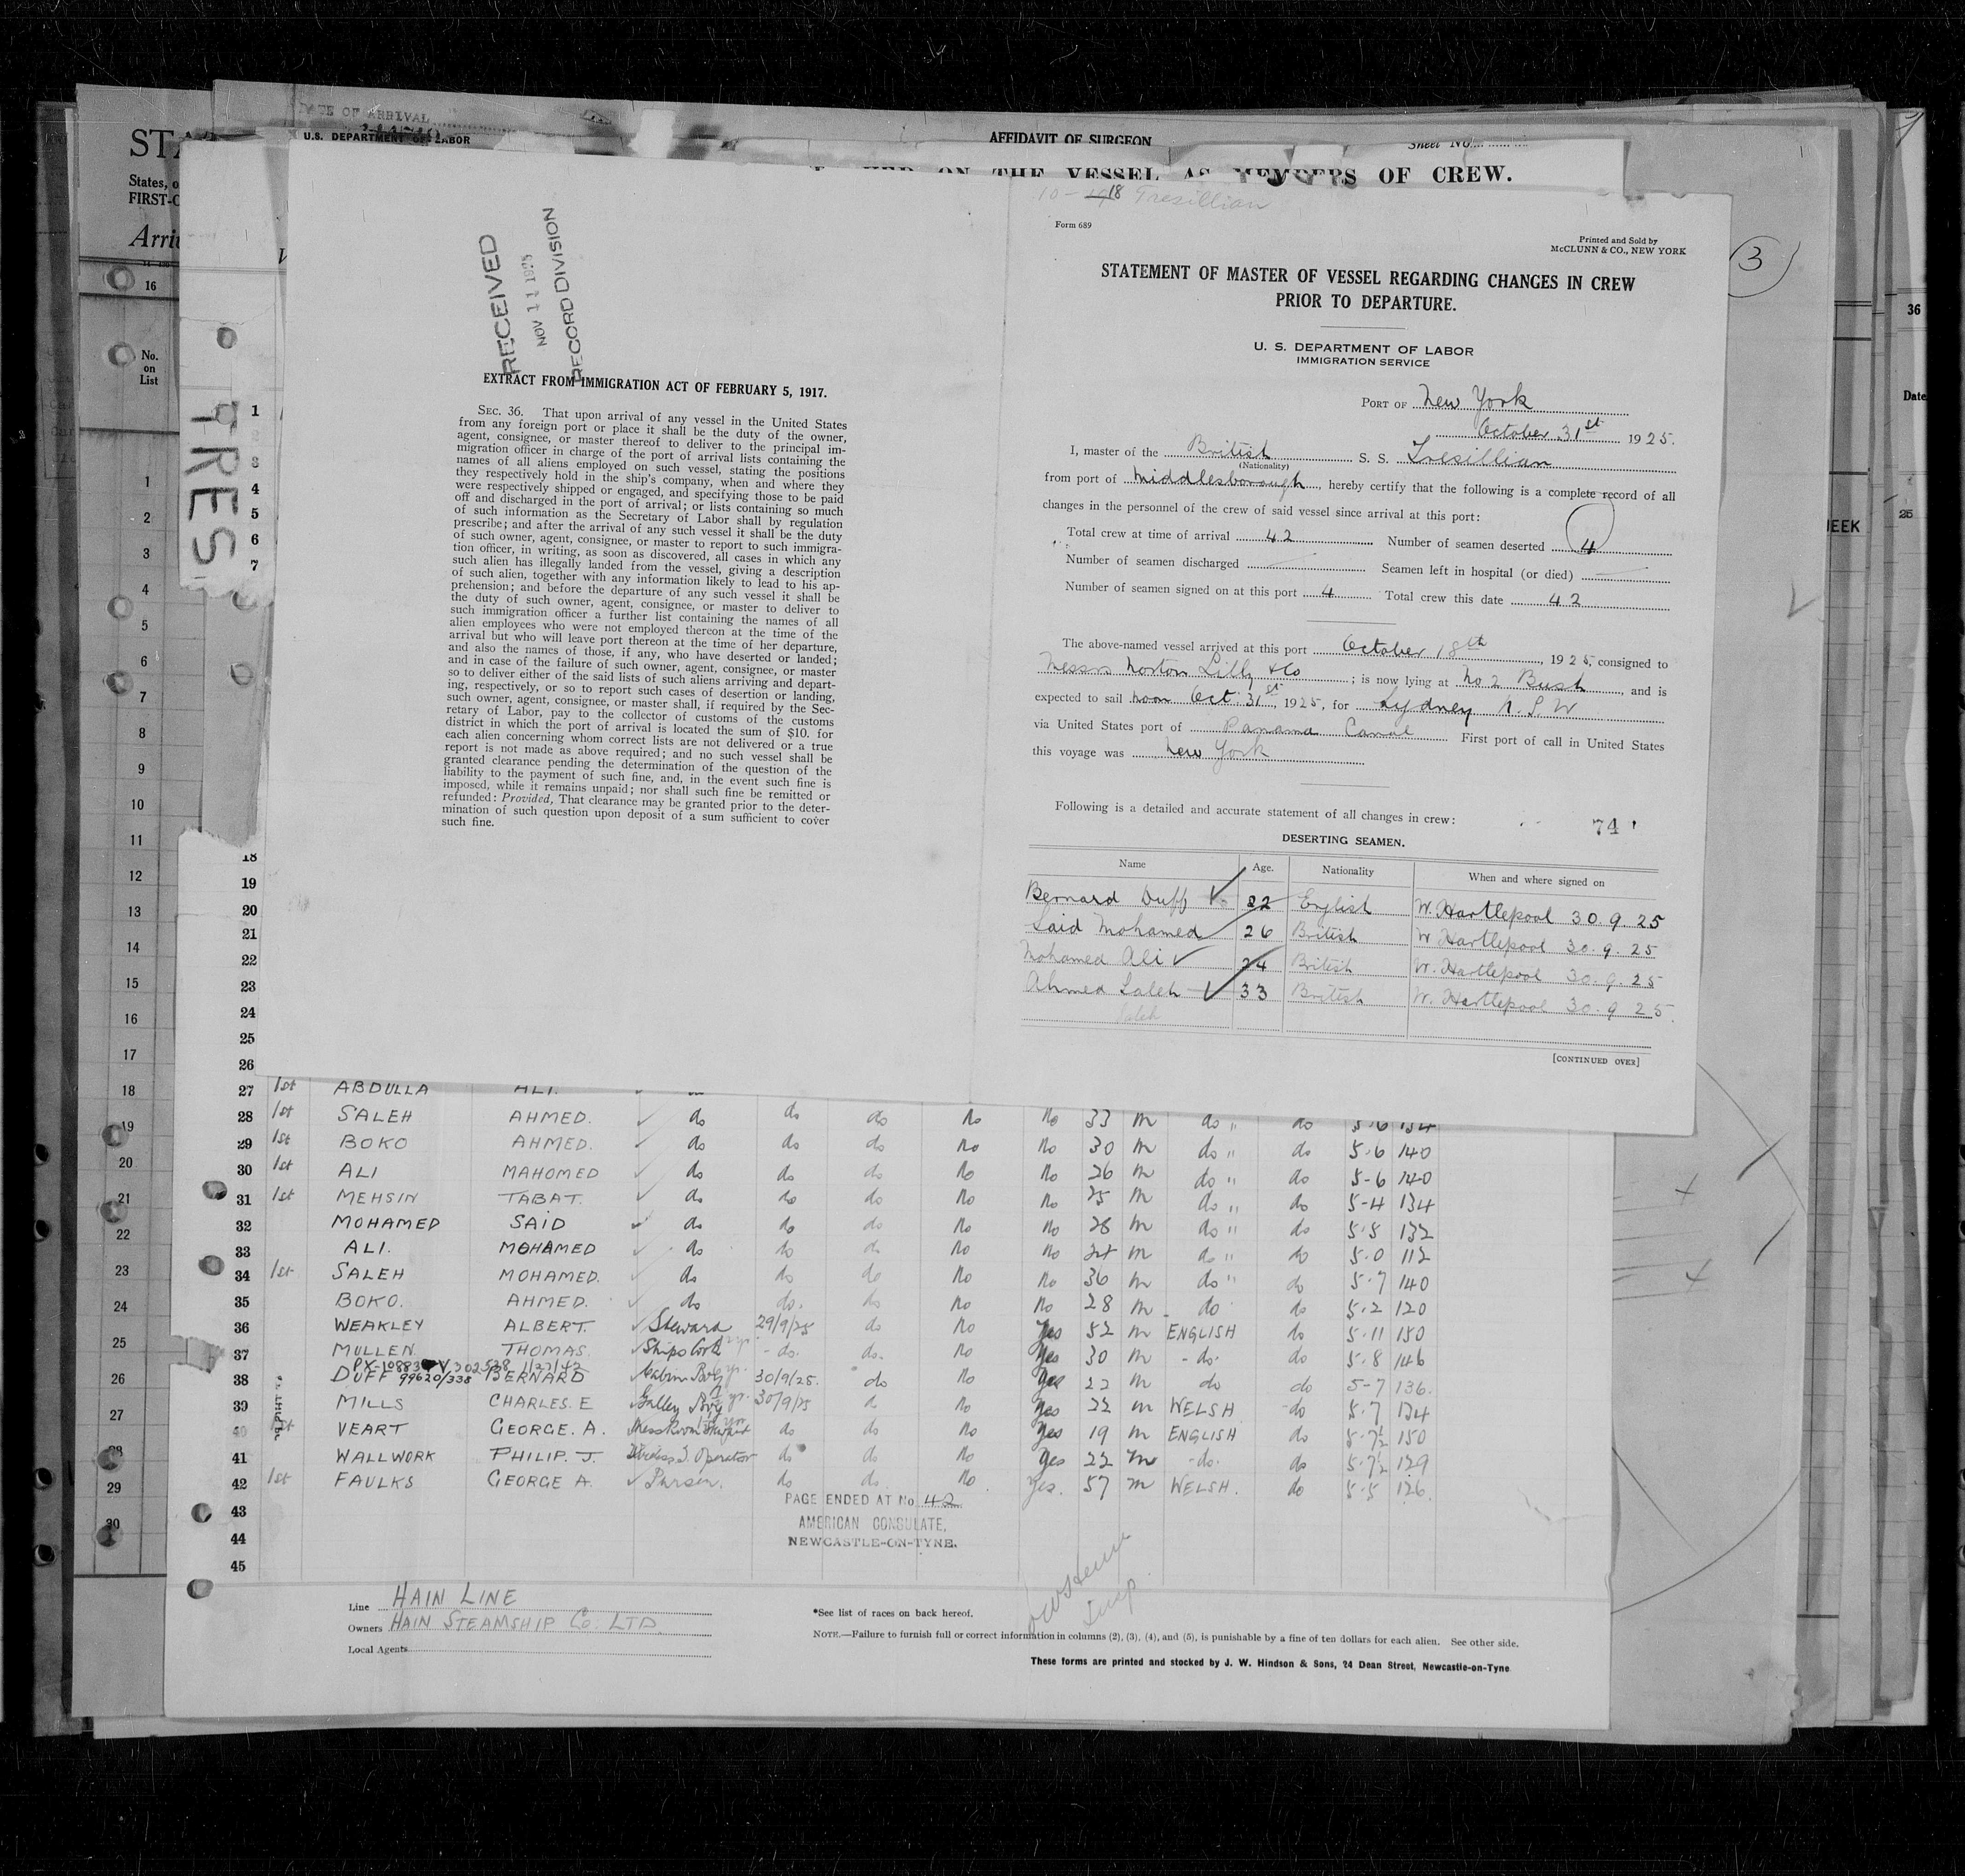 DATE OF ARRIVAL
U.S. DEPARTMENT OF LABOR
AFFIDAVIT OF SURGEON
Sheet No.
ON THE VESSEL AS MEMBERS OF CREW.
States, o
FIRST-C
Arri
16
No.
on
List
TRES
RECEIVED
NOV 11 1925
RECORD DIVISION
EXTRACT FROM IMMIGRATION ACT OF FEBRUARY 5, 1917.
SEC. 36. That upon arrival of any vessel in the United States
from any foreign port or place it shall be the duty of the owner,
agent, consignee, or master thereof to deliver to the principal im-
migration officer in charge of the port of arrival lists containing the
names of all aliens employed on such vessel, stating the positions
they respectively hold in the ship's company, when and where they
were respectively shipped or engaged, and specifying those to be paid
off and discharged in the port of arrival; or lists containing so much
of such information as the Secretary of Labor shall by regulation
prescribe; and after the arrival of any such vessel it shall be the duty
of such owner, agent, consignee, or master to report to such immigra-
tion officer, in writing, as soon as discovered, all cases in which any
such alien has illegally landed from the vessel, giving a description
of such alien, together with any information likely to lead to his ap-
prehension; and before the departure of any such vessel it shall be
the duty of such owner, agent, consignee, or master to deliver to
such immigration officer a further list containing the names of all
alien employees who were not employed thereon at the time of the
arrival but who will leave port thereon at the time of her departure,
and also the names of those, if any, who have deserted or landed;
and in case of the failure of such owner, agent, consignee, or master
so to deliver either of the said lists of such aliens arriving and depart-
ing, respectively, or so to report such cases of desertion or landing,
such owner, agent, consignee, or master shall, if required by the Sec-
retary of Labor, pay to the collector of customs of the customs
district in which the port of arrival is located the sum of $10. for
each alien concerning whom correct lists are not delivered or a true
report is not made as above required; and no such vessel shall be
granted clearance pending the determination of the question of the
liability to the payment of such fine, and, in the event such fine is
imposed, while it remains unpaid; nor shall such fine be remitted or
refunded: Provided, That clearance may be granted prior to the deter-
mination of such question upon deposit of a sum sufficient to cover
such fine.
18 Tresillian
Form 689
Printed and Sold by
McCLUNN & CO., NEW YORK
3
STATEMENT OF MASTER OF VESSEL REGARDING CHANGES IN CREW
PRIOR TO DEPARTURE.
U. S. DEPARTMENT OF LABOR
IMMIGRATION SERVICE
PORT OF New York
October 31st 1925.
I, master of the British S. S. Tresillian
(Nationality)
from port of Middlesborough, hereby certify that the following is a complete record of all
changes in the personnel of the crew of said vessel since arrival at this port:
Total crew at time of arrival 42 Number of seamen deserted 4
Number of seamen discharged Seamen left in hospital (or died)
Number of seamen signed on at this port 4 Total crew this date 42
The above-named vessel arrived at this port October 18th, 1925, consigned to
Messrs Norton Lilly & Co; is now lying at No 2 Bush, and is
expected to sail noon Oct. 31st, 1925, for Sydney N.S.W
via United States port of Panama Canal First port of call in United States
this voyage was New York
Following is a detailed and accurate statement of all changes in crew:
74
DESERTING SEAMEN.
Name Age. Nationality When and where signed on
Bernard Duff 22 English W. Hartlepool 30.9.25
Said Mohamed 26 British W Hartlepool 30.9.25
Mohamed Ali 24 British W. Hartlepool 30.9.25
Ahmed Saleh 33 British W. Hartlepool 30.9 25
Saleh
[CONTINUED OVER]
27 1st ABDULLA ALI.
28 1st SALEH AHMED. do do do No No 33 m do " do 5.6 134
29 1st BOKO AHMED. do do do No No 30 m do " do 5.6 140
30 1st ALI MAHOMED do do do No No 26 m do " do 5-6 140
31 1st MEHSIN TABAT. do do do No No 25 m do " do 5-4 134
32 MOHAMED SAID do do do No No 26 m do " do 5.5 132
33 ALI. MOHAMED do do do No No 24 m do " do 5.0 112
34 1st SALEH MOHAMED. do do do No No 36 m do " do 5.7 140
35 BOKO. AHMED. do do. do No No 28 m do do 5.2 120
36 WEAKLEY ALBERT. Steward 29/9/25 do No Yes 52 m ENGLISH do 5.11 150
37 MULLEN. THOMAS. Ships Cook - do. do. No Yes 30 m - do. do 5.8 146
1/22/42
38 DUFF 99620/338 BERNARD Cabin Boy 30/9/25. do No Yes 22 m do do 5-7 136.
39 MILLS CHARLES. E Galley Boy 30/9/25 d No Yes 22 m WELSH do 5.7 134
40 1st VEART GEORGE. A. Messroom Steward do do No Yes 19 m ENGLISH do 5.7½ 150
41 WALLWORK PHILIP. J. Wireless Operator do do No Yes 22 m - do. do 5.7½ 129
42 1st FAULKS GEORGE A. Purser. do do. No Yes. 57 m WELSH. do 5.5 126.
43
44
45
PAGE ENDED AT No 42
AMERICAN CONSULATE,
NEWCASTLE-ON-TYNE.
Line HAIN LINE
Owners HAIN STEAMSHIP CO. LTD.
Local Agents
*See list of races on back hereof.
NOTE.—Failure to furnish full or correct information in columns (2), (3), (4), and (5), is punishable by a fine of ten dollars for each alien. See other side.
These forms are printed and stocked by J. W. Hindson & Sons, 24 Dean Street, Newcastle-on-Tyne
36
Date
EEK
25